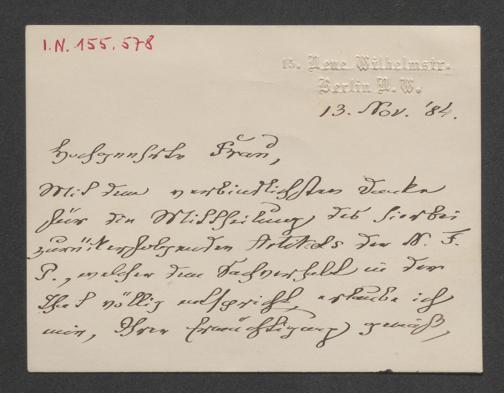 I.N. 155.578
15. Neue Wilhelmstr.
Berlin N.W.
13. Nov. '84.
Hochgeehrte Frau,
Mit dem verbindlichsten Danke
für die Mittheilung des hierbei
zurückerfolgenden Artikels der N. F.
P., welcher dem Sachverhalt in der
That völlig entspricht, erlaube ich
mir, Ihrer Ermächtigung gemäß,